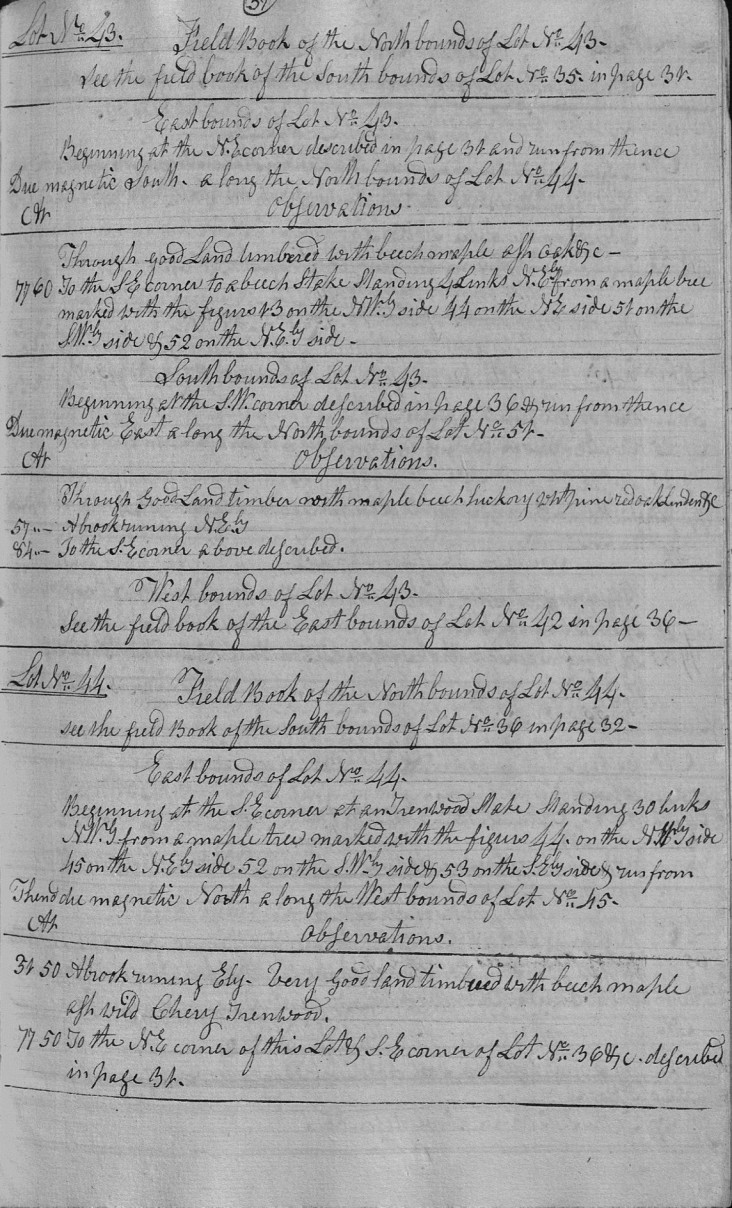 37
Lot No. 43. Field Book of the North bounds of Lot No. 43-
See the field book of the South bounds of Lot No. 35. in page 31.
East bounds of Lot No. 43.
Beginning at the N.E corner described in page 31 and run from thence
Due magnetic South. along the North bounds of Lot No. 44-
Ch
Observations
Through good Land timbered with beech maple ash oak &c -
77 60 To the S.E corner to a beech Stake Standing 4 Links N.Ely from a maple tree
marked with the figurs 43 on the NWly side 44 on the NE side 51 on the
S.Wly side & 52 on the N.E.ly side -
South bounds of Lot No. 43-
Beginning at the S.W. corner described in page 36 & run from thence
Due magnetic East along the North bounds of Lot No. 51-
Ch
Observations.
Through Good Land timber with maple beech hickory wht pine red oak Linden &c
57 " - A brook runing N.Ely
84 " - To the S.E corner above described.
West bounds of Lot No. 43-
See the field book of the East bounds of Lot No. 42 in page 36 -
Lot No. 44. Field Book of the North bounds of Lot No. 44-
see the field Book of the South bounds of Lot No. 36 in page 32-
East bounds of Lot No. 44-
Beginning at the S.E corner at an Irenwood Stake Standing 30 links
NWly from a maple tree marked with the figurs 44. on the NWly side
45 on the N.Ely side 52 on the S.Wly side & 53 on the S.Ely side & run from
Thend due magnetic North along the West bounds of Lot No. 45-
Ch
Observations.
31 50 A brook runing Ely- Very Good land timbered with beech maple
ash wild Chery Irenwood.
77 50 To the N.E corner of this Lot & S.E corner of Lot No. 36 &c. described
in page 31.